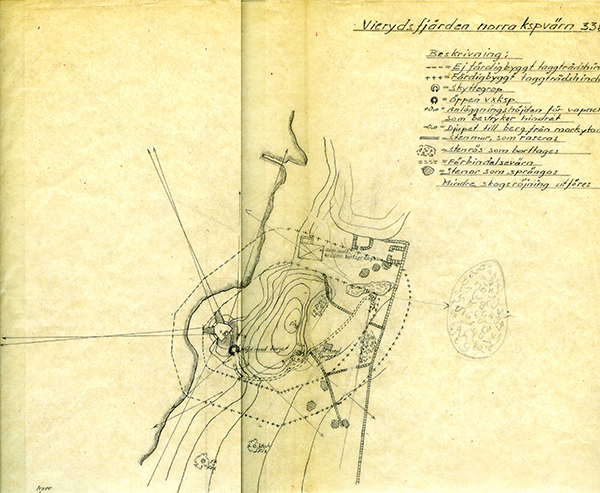 Vierydsfjärden norra kspvärn 33
Beskrivning:
--- = Ej färdigbyggt taggtrådshin
+++ = Färdigbyggt taggtrådshind
= Skyttegrop
= Öppen vxksp
= Anläggningshöjden för vapnet
som bestryker hindret
= Djupet till berg från markytan
= Stenmur, som raseras
= Stenrös som borttages
= Förbindelsevärn
= Stenar som sprängas
Mindre skogsröjning utföres
Norr